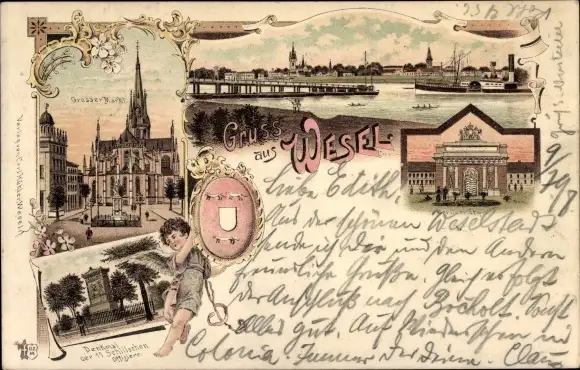 Grosser Markt
Gruss
aus WESEL
Denkmal
der 11 Schillschen
Offiziere
Liebe Edith,
Aus der schönen Weselstadt
sende ich dir und den Andern
freundliche Grüße. Gleich erfolgt
der Anschluß nach Bocholt. Sonst
alles gut. Auf Wiedersehen und
Colonia. Immer der Deine. Claus